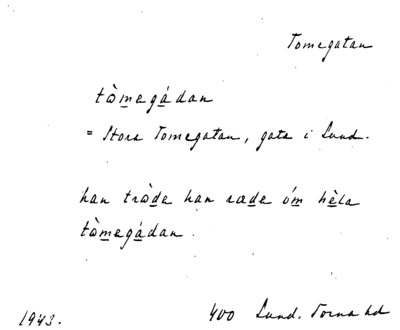 Tomegatan
tòmegádan
= Stora Tomegatan, gata i Lund.
han tròde han ræde óm hèla
tòmegádan.
1943. 400 Lund. Torna hd